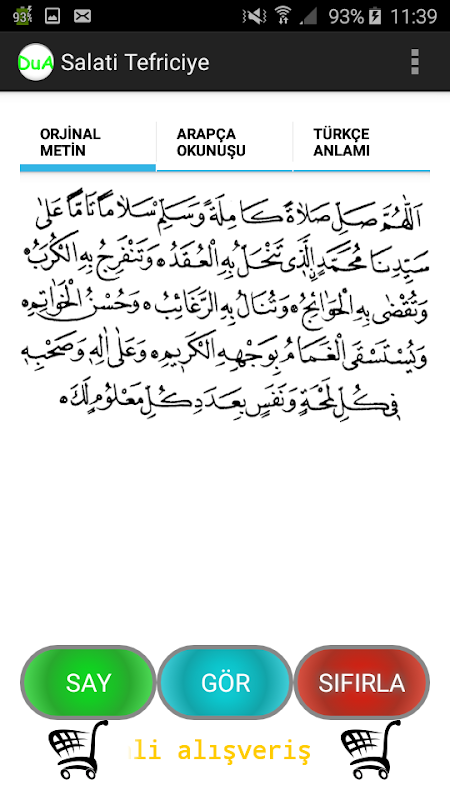 93%
93% 11:39
DuA Salati Tefriciye
ORJİNAL METİN
ARAPÇA OKUNUŞU
TÜRKÇE ANLAMI
اَللّٰهُمَّ صَلِّ صَلَاةً كَامِلَةً وَسَلِّمْ سَلَامًا تَامًّا عَلٰى
سَيِّدِنَا مُحَمَّدٍ الَّذِي تَنْحَلُّ بِهِ الْعُقَدُ وَتَنْفَرِجُ بِهِ الْكُرَبُ
وَتُقْضٰى بِهِ الْحَوَائِجُ وَتُنَالُ بِهِ الرَّغَائِبُ وَحُسْنُ الْخَوَاتِمِ
وَيُسْتَسْقَى الْغَمَامُ بِوَجْهِهِ الْكَرِيمِ وَعَلٰى اٰلِهِ وَصَحْبِهِ
فِي كُلِّ لَمْحَةٍ وَنَفَسٍ بِعَدَدِ كُلِّ مَعْلُومٍ لَكَ
SAY
GÖR
SIFIRLA
li alışveriş